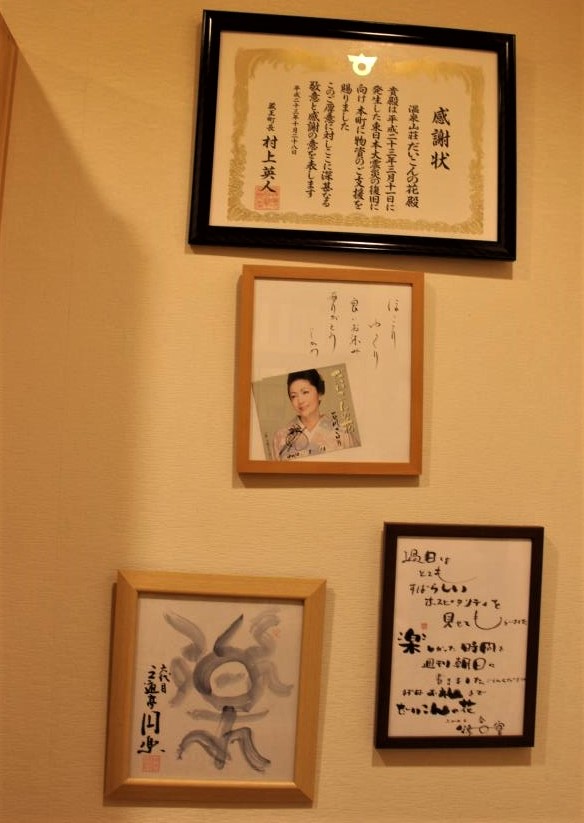 感謝状
温泉山荘だいこんの花殿
貴殿は平成二十三年三月十一日に
発生した東日本大震災の復旧に
向け本町に物資のご支援を
賜りました
このご厚意に対しここに深甚なる
敬意と感謝の意を表します
平成二十三年十月二十八日
蔵王町長 村上英人
ほっこり
ゆっくり
ありがとう
だいこんの花
過日は
とても
すばらしい
ホスピタリティを
見せて
楽しかった時間を
週刊朝日に
書きました
だいこんの花
六代目
三遊亭
円楽